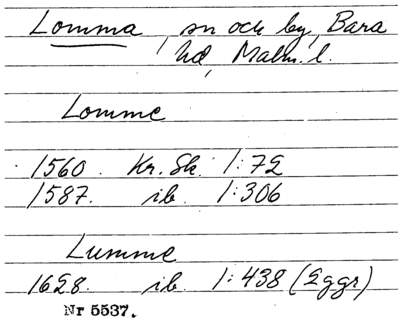 Lomma, sn och by, Bara
hd, Malm. l.
Lomme
1560. Kr. Sk. 1:72
1587. ib. 1:306
Lumme
1628. ib. 1:438 (2 ggr)
Nr 5537.